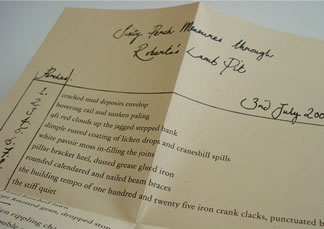 Sixty Perch Measures through
Roberta's Lamb Pit
Perches
3rd July 200
1. cracked mud deposits envelop
hovering rail and sunken paling
9ft red clouds up the jagged stepped bank
dimple rusted coating of lichen drops and cranesbill spills
white pavour moss in-filling the joins
pillar bracket heel, dusted grease glued iron
rounded calendared and nailed beam braces
the building tempo of one hundred and twenty five iron crank clacks, punctuated b
the stiff quiet
dropped stop